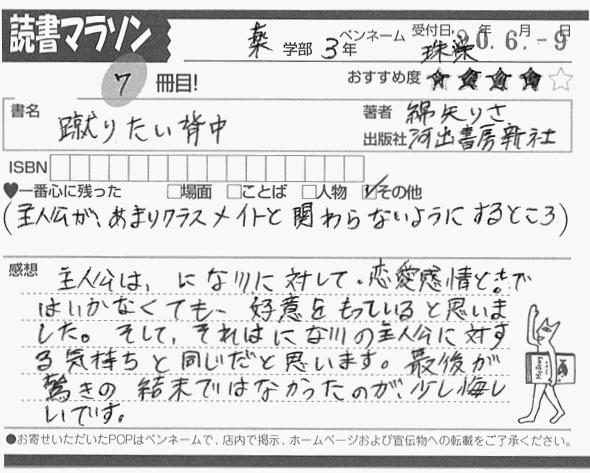 読書マラソン
薬 学部 3年
ペンネーム 珠深
受付日 20年 6月 -9日
7 冊目!
おすすめ度 ★★★★☆
書名 蹴りたい背中
著者 綿矢りさ
出版社 河出書房新社
ISBN
♥一番心に残った □場面 □ことば □人物 ☑その他
(主人公が、あまりクラスメイトと関わらないようにするところ)
感想 主人公は、にな川に対して、恋愛感情とまで
はいかなくても、好意をもっていると思いま
した。そして、それはにな川の主人公に対す
る気持ちと同じだと思います。最後が
驚きの結末ではなかったのが、少し悔し
いです。
●お寄せいただいたPOPはペンネームで、店内で掲示、ホームページおよび宣伝物への転載をご了承ください。